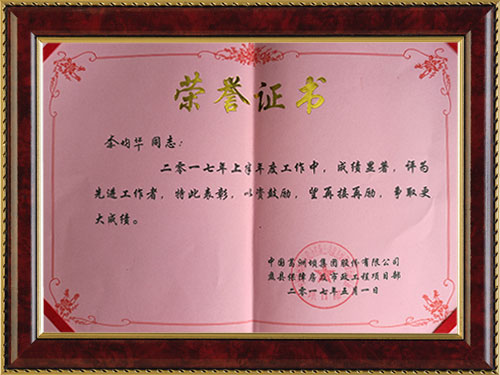 荣誉证书
李均华 同志:
二零一七年上半年度工作中,成绩显著,评为
先进工作者,特此表彰,以资鼓励,望再接再励,争取更
大成绩。
中国葛洲坝集团股份有限公司
盘县保障房及市政工程项目部
二零一七年五月一日